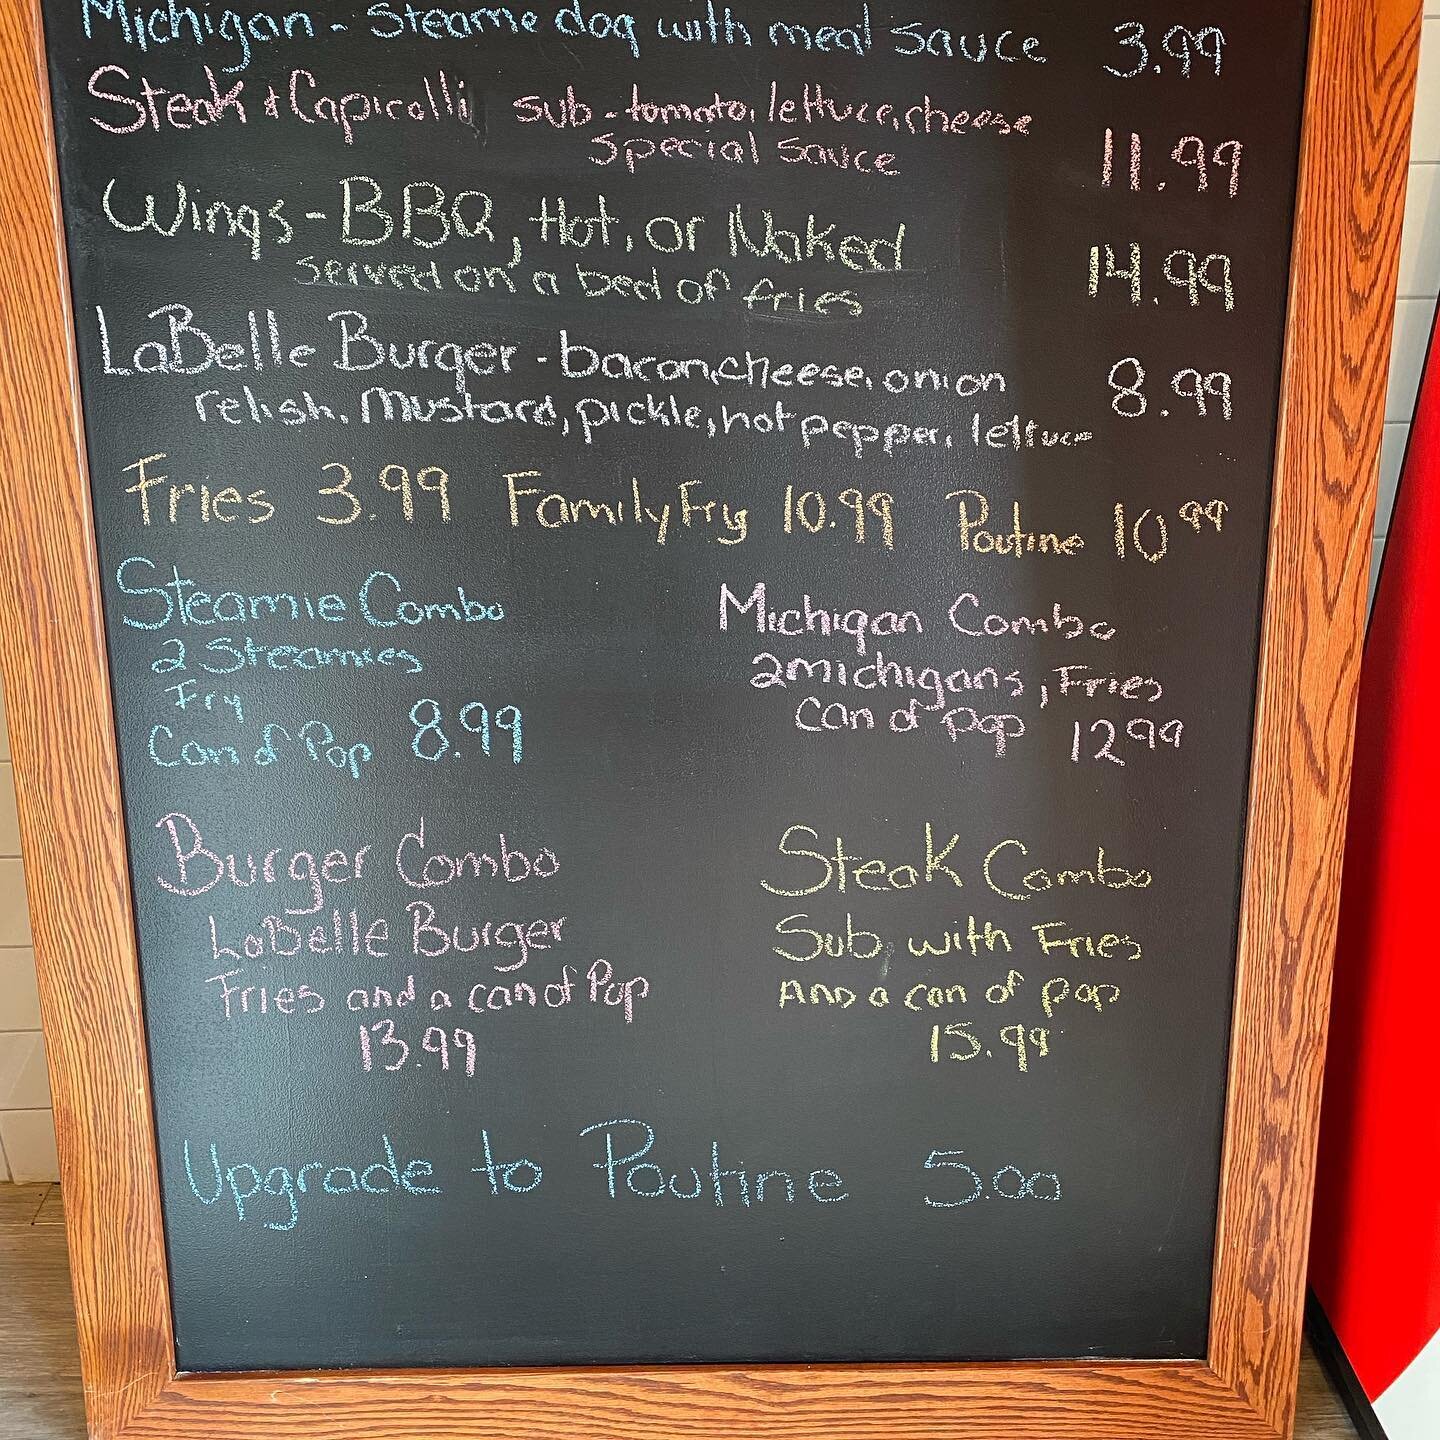 Michigan - Steame dog with meat sauce 3.99
Steak & Capicolli sub - tomato, lettuce, cheese
special sauce 11.99
Wings - BBQ, Hot, or Naked
served on a bed of fries 14.99
LaBelle Burger - bacon, cheese, onion 8.99
relish, mustard, pickle, hot pepper, lettuce
Fries 3.99 Family Fry 10.99 Poutine 10 99
Steamie Combo
2 Steamies
Fry
Can of Pop 8.99
Michigan Combo
2 michigans, Fries
can of pop 12 99
Burger Combo
LaBelle Burger
Fries and a can of Pop
13.99
Steak Combo
Sub, with Fries
And a can of pop
15.99
Upgrade to Poutine 5.00